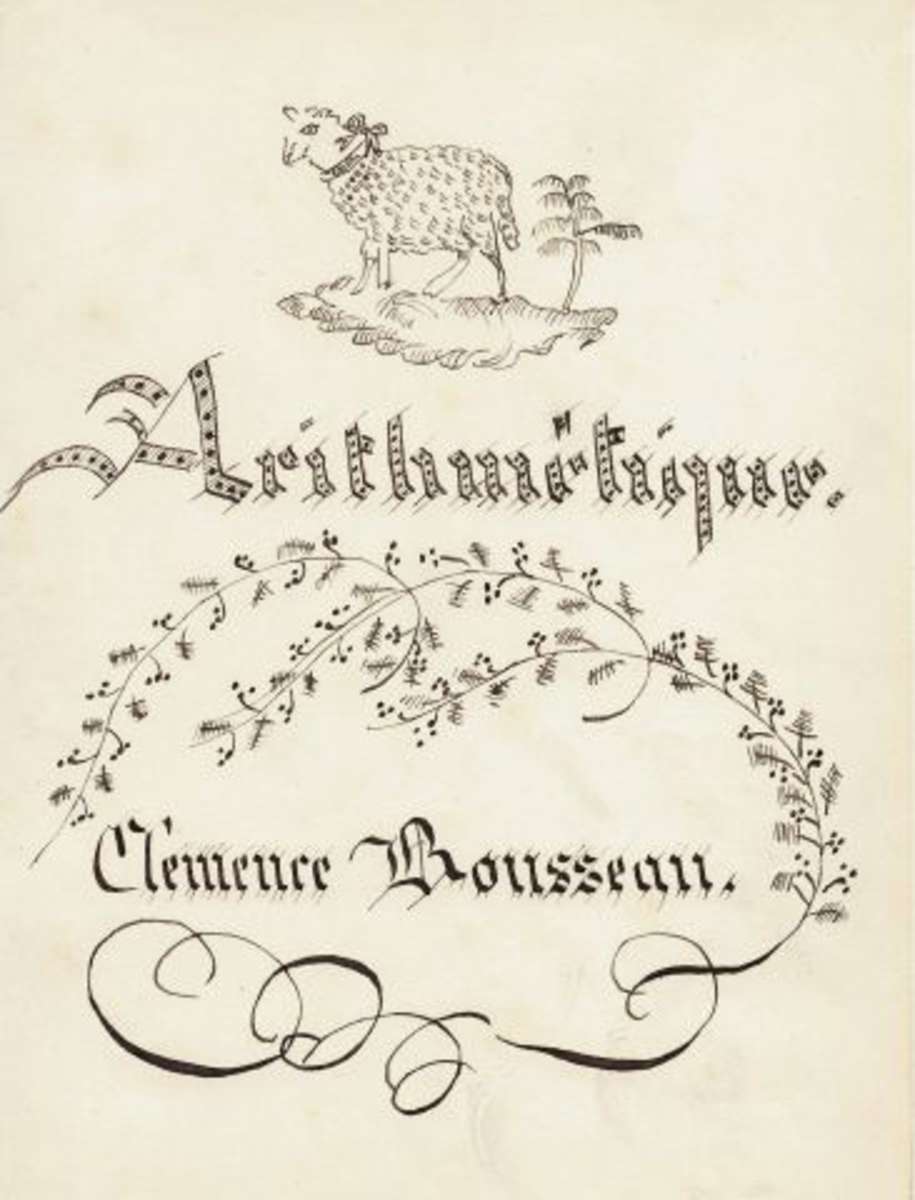 Arithmétique.
Clémence Rousseau.